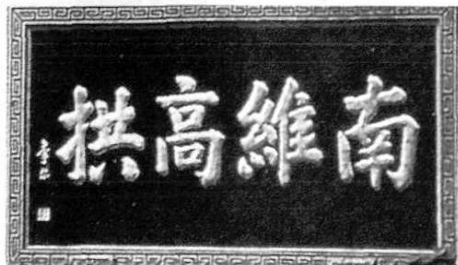 南維高拱